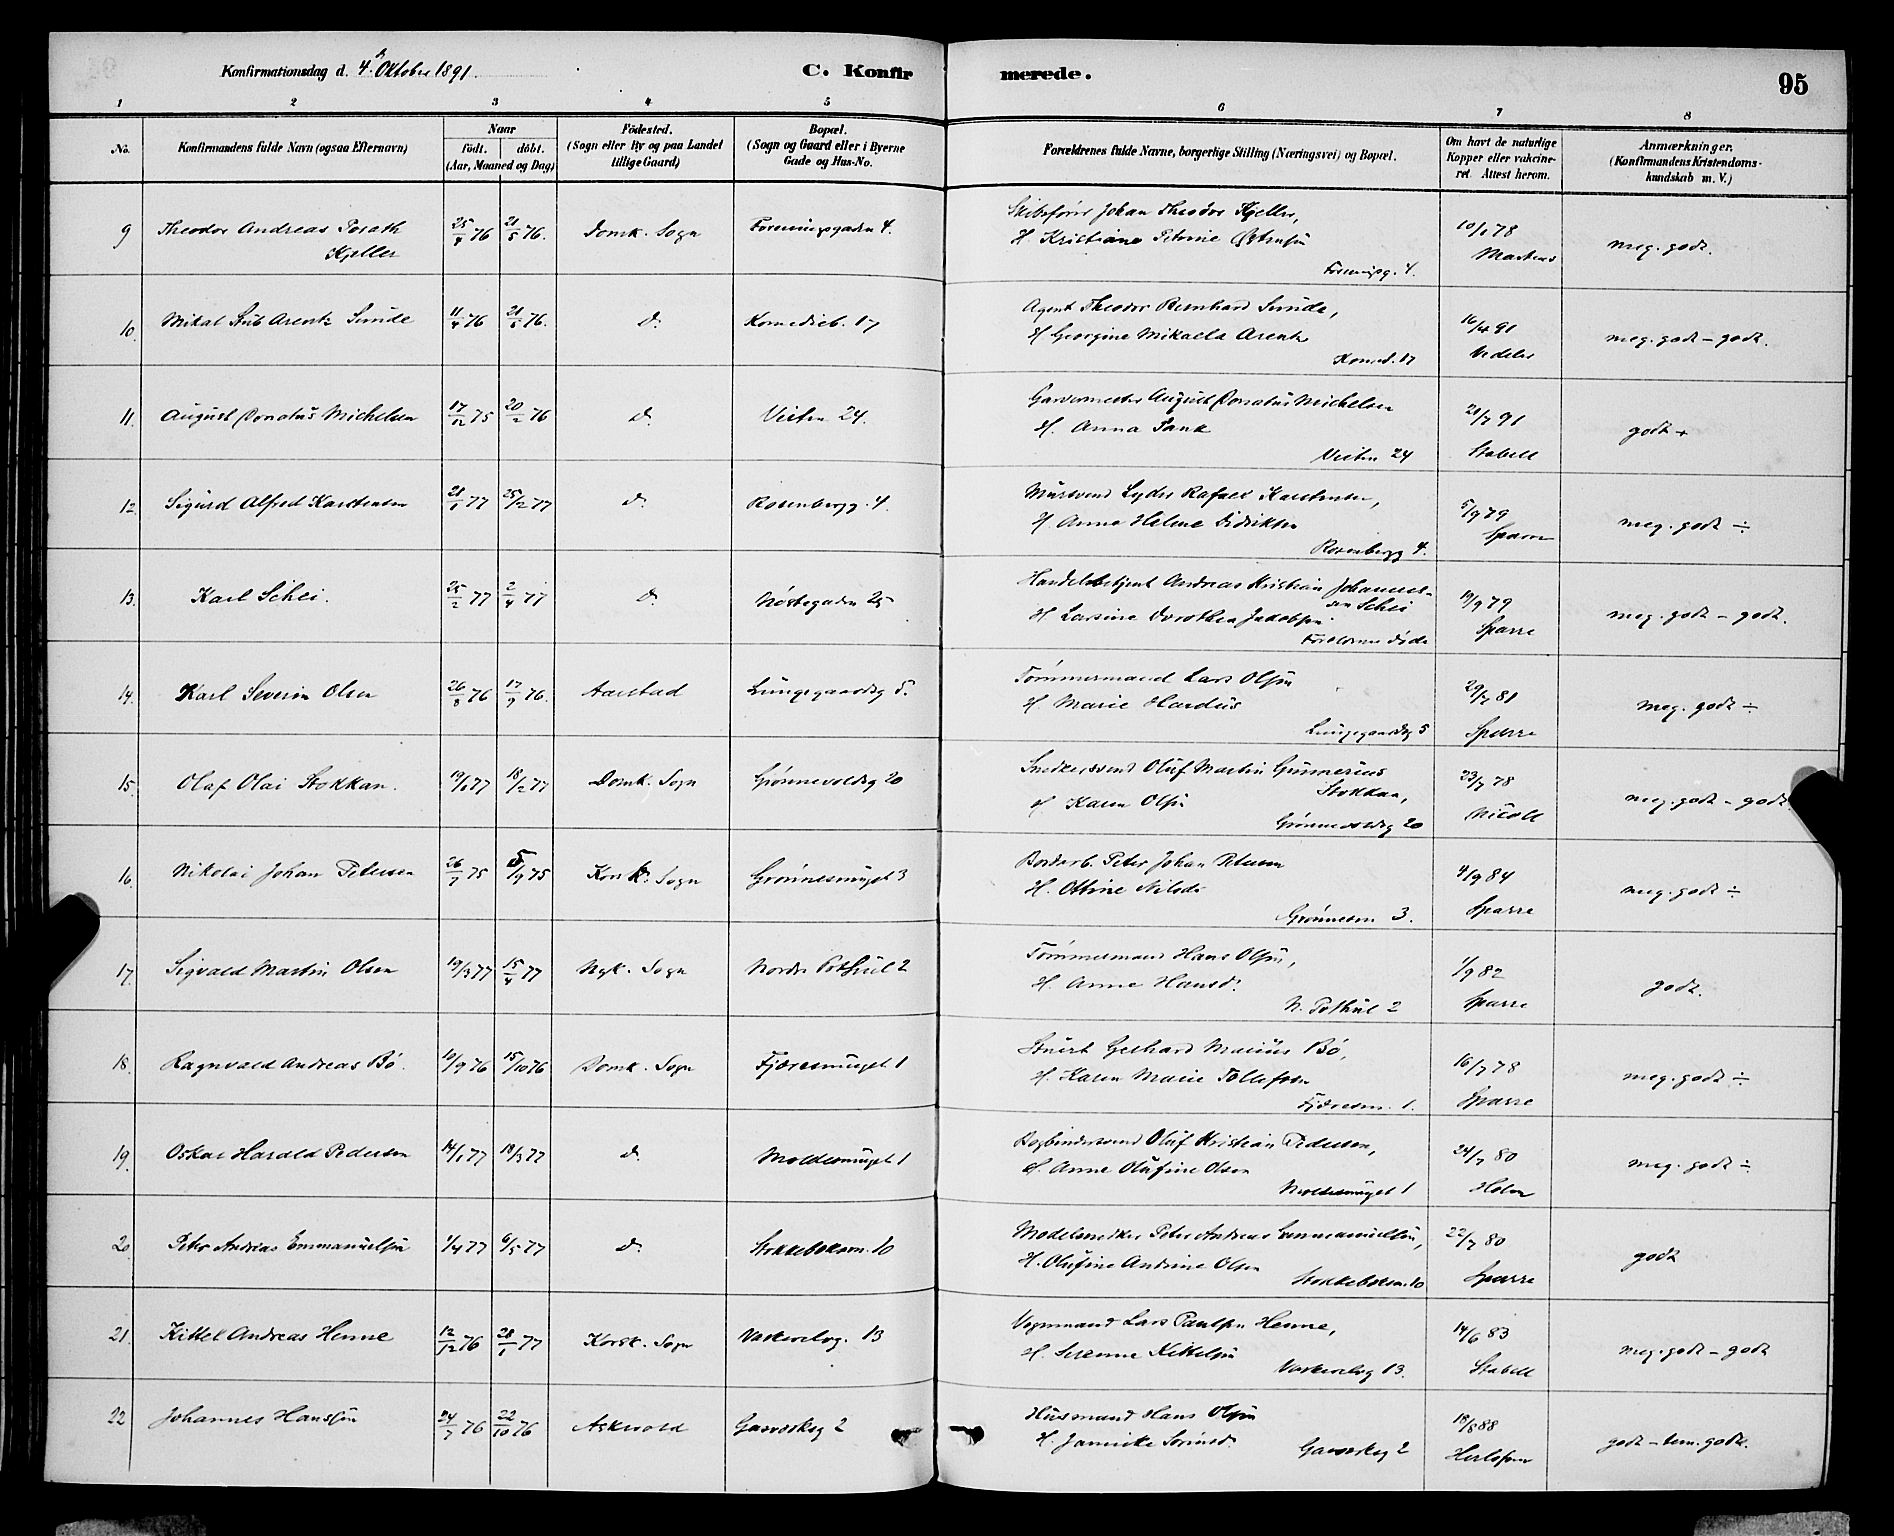 Konfirmationsdag d. 4. Oktober 1891. C. Konfirmerede. 95
1 2 3 4 5 6 7 8
No. Konfirmandens fulde Navn (ogsaa Efternavn) Naar födt. döbt. (Aar, Maaned og Dag) Födested. (Sogn eller By og paa Landet tillige Gaard) Bopæl. (Sogn og Gaard eller i Byerne Gade og Hus-No. Forældrenes fulde Navne, borgerlige Stilling (Næringsvei) og Bopæl. Om havt de naturlige Kopper eller vakcineret. Attest herom. Anmærkninger. (Konfirmandens Kristendomskundskab m. V.)
9 Theodor Andreas Porath Kjeller 25/4 76 21/5 76. Domk. Sogn Foreningsgaden 4. Skibsfører Johan Theodor Kjeller, H. Kristiane Petrine 10/1 78 Martens meg. godt.
10. Mikal Stub Arentz Sunde 11/4 76 21/5 76. d. Komedieb. 17 Agent Theodor Bernhard Sunde, H Georgine Mikaela Arentz Komed. 17 16/4 91 Vedeler meg. godt – godt.
11. August Donatus Michelsen 17/12 75 20/2 76 d. Veiten 24. Garvermester August Donatus Michelsen H. Anna Tank Veiten 24 21/7 91 Stabell godt +
12. Sigurd Alfred Karstensen 21/1 77 25/2 77 d. Rosenbergg. 4. Mursvend Lyder Rafael Karstensen, H Anna Helene Didriksen Rosenbergg 4. 5/9 79 Sparre meg. godt ÷
13. Karl Schei. 25/2 77 2/4 77 d. Nøstegaden 25 Handelsbetjent Andreas Kristian Johannessen Schei H Larsine Dorothea Jakobsen Forældrene døde 19/9 79 Sparre meg. godt – godt.
14. Karl Severin Olsen 26/8 76 17/9 76. Aarstad Lungegaardsg 5. Tømmermand Lars Olsen H. Marie Lungegaardsg 5 29/7 81 Sparre meg. godt ÷
15. Olaf Olai Stokkan. 19/1 77 18/2 77 Domk. Sogn Grønnevoldsg 20 Snedkersvend Oluf Martin Gunnerius Stokkan, H Karen Olsen Grønnevoldsg 20 23/7 78 Nicoll meg. godt – godt
16. Nikolai Johan Petersen 26/7 75 5/9 75 Korsk. Sogn Grønnesmuget 3 Bordarb. Peter Johan Petersen H. Oltine Nilsdr Grønnesm 3. 4/9 84 Sparre meg. godt ÷
17. Sigvald Martin Olsen 19/3 77 15/4 77 Nyk. Sogn Nordre Pothul 2 Tømmermand Hans Olsen, H. Anne Hansd. N. Pothul 2 1/9 82 Sparre godt.
18. Ragnvald Andreas Bö. 10/9 76 15/10 76 Domk. Sogn Fjæresmuget 1 Stuert Gerhard Marius Bö, H. Karen Marie Tollefsen Fjæresm. 1. 16/7 78 Sparre meg. godt ÷
19. Oskar Harald Pedersen 14/1 77 18/3 77 d. Moldesmuget 1 Bogbindersvend Oluf Kristian Pedersen, H Anne Olufine Olsen Moldesmuget 1 24/7 80 Holm meg. godt ÷
20. Peter Andreas Emmanuelsen 1/4 77 6/5 77 d. Stokkeboksm. 10 Modelsnedker Peter Andreas Emmanuelsen, H. Olufine Andrine Olsen Stokkeboksm. 10 22/7 80 Sparre godt
21. Kittel Andreas Henne 12/12 76 28/1 77 Korsk. Sogn Vaskerelvg. 13 Vognmand Lars Paulsen Henne, H. Susanne Kittelsen Vaskerelvg 13. 14/6 83 Stabell meg. godt – godt
22 Johannes Hanssen 24/7 76 22/10 76 Askvold Gasverksg 2 Husmand Hans Olsen H. Jannicke Gasverksg 2 18/8 88 godt – tem. godt.